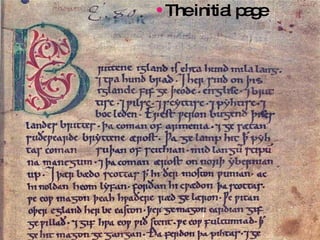 The initial page
Brittene igland is ehta hund mila lang.
⁊ tpa hund brad. ⁊ her sind on þis
iglande fif geþeode. englisc. ⁊ brit
tisc. ⁊ pilsc. ⁊ scyttisc. ⁊ pyhtisc. ⁊
boc leden. Erest peron bugend þises
landes brittes. þa coman of armenia. ⁊ gesætan
suðepearde bryttene ærost. Þa gelamp hit ꝥ pyh
tas coman suþan of scithian. mid langū scipū
na manegum. ⁊ þa coman ærost on norþ ybernian
up. ⁊ þær bædo scottas ꝥ hi ðer moston punian. ac
hi noldan heom lyfan. forðan hi cpædon þa scottas.
pe eop magon þeah hpaðere ræd gelæron. pe pitan
oþer egland her be easton. þer ge magon eardian gif
ge pillað. ⁊ gif hpa eop pið stent. pe eop fultumiað. ꝥ
ge hit magon gegangan. Ða ferdon þa pihtas. ⁊ ge